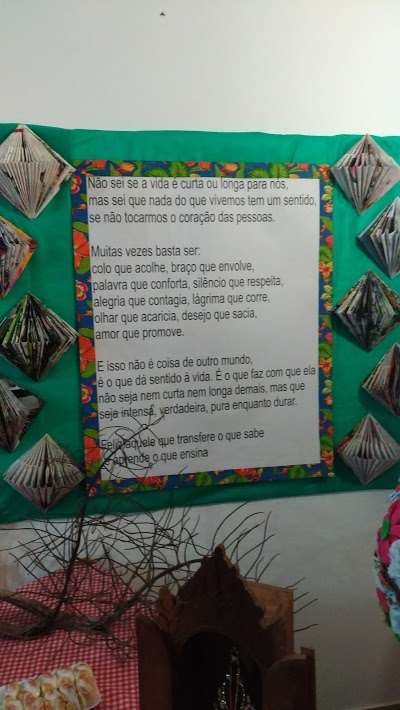 Não sei se a vida é curta ou longa para nós,
mas sei que nada do que vivemos tem um sentido,
se não tocarmos o coração das pessoas.
Muitas vezes basta ser:
colo que acolhe, braço que envolve,
palavra que conforta, silêncio que respeita,
alegria que contagia, lágrima que corre,
olhar que acaricia, desejo que sacia,
amor que promove.
E isso não é coisa de outro mundo,
é o que dá sentido à vida. É o que faz com que ela
não seja nem curta nem longa demais, mas que
seja intensa, verdadeira, pura enquanto durar.
Feliz aquele que transfere o que sabe
e aprende o que ensina